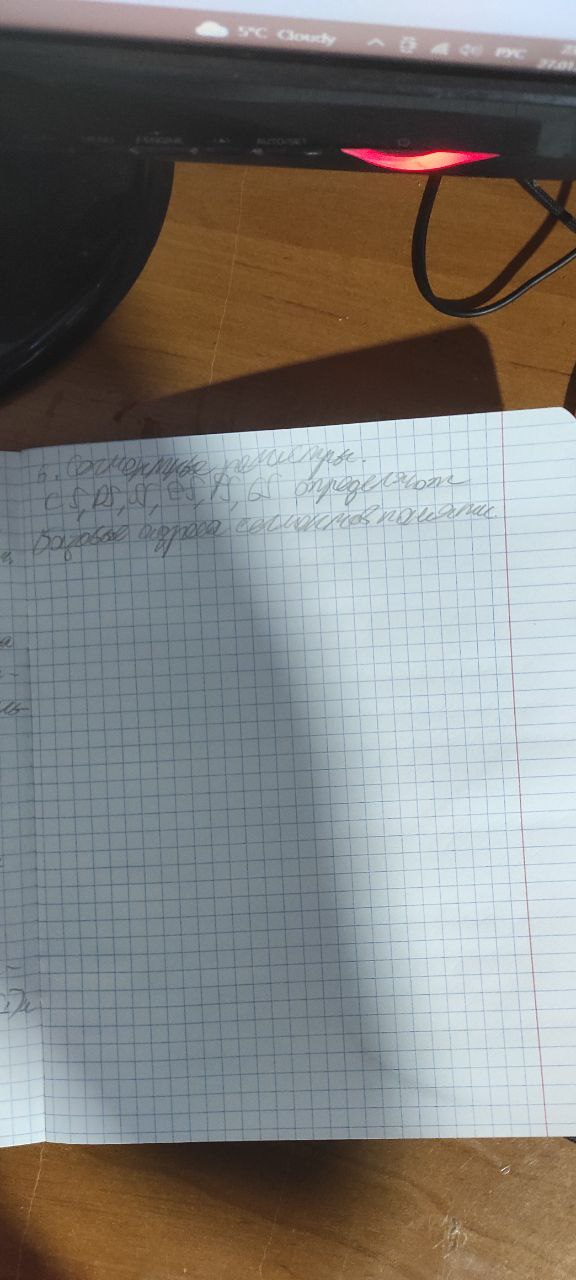 5°C Cloudy
РУС
27.01.
AUTO/SET
6. Сегментные регистры.
CS, DS, SS, ES, FS, GS определяют
базовые адреса сегментов памяти.